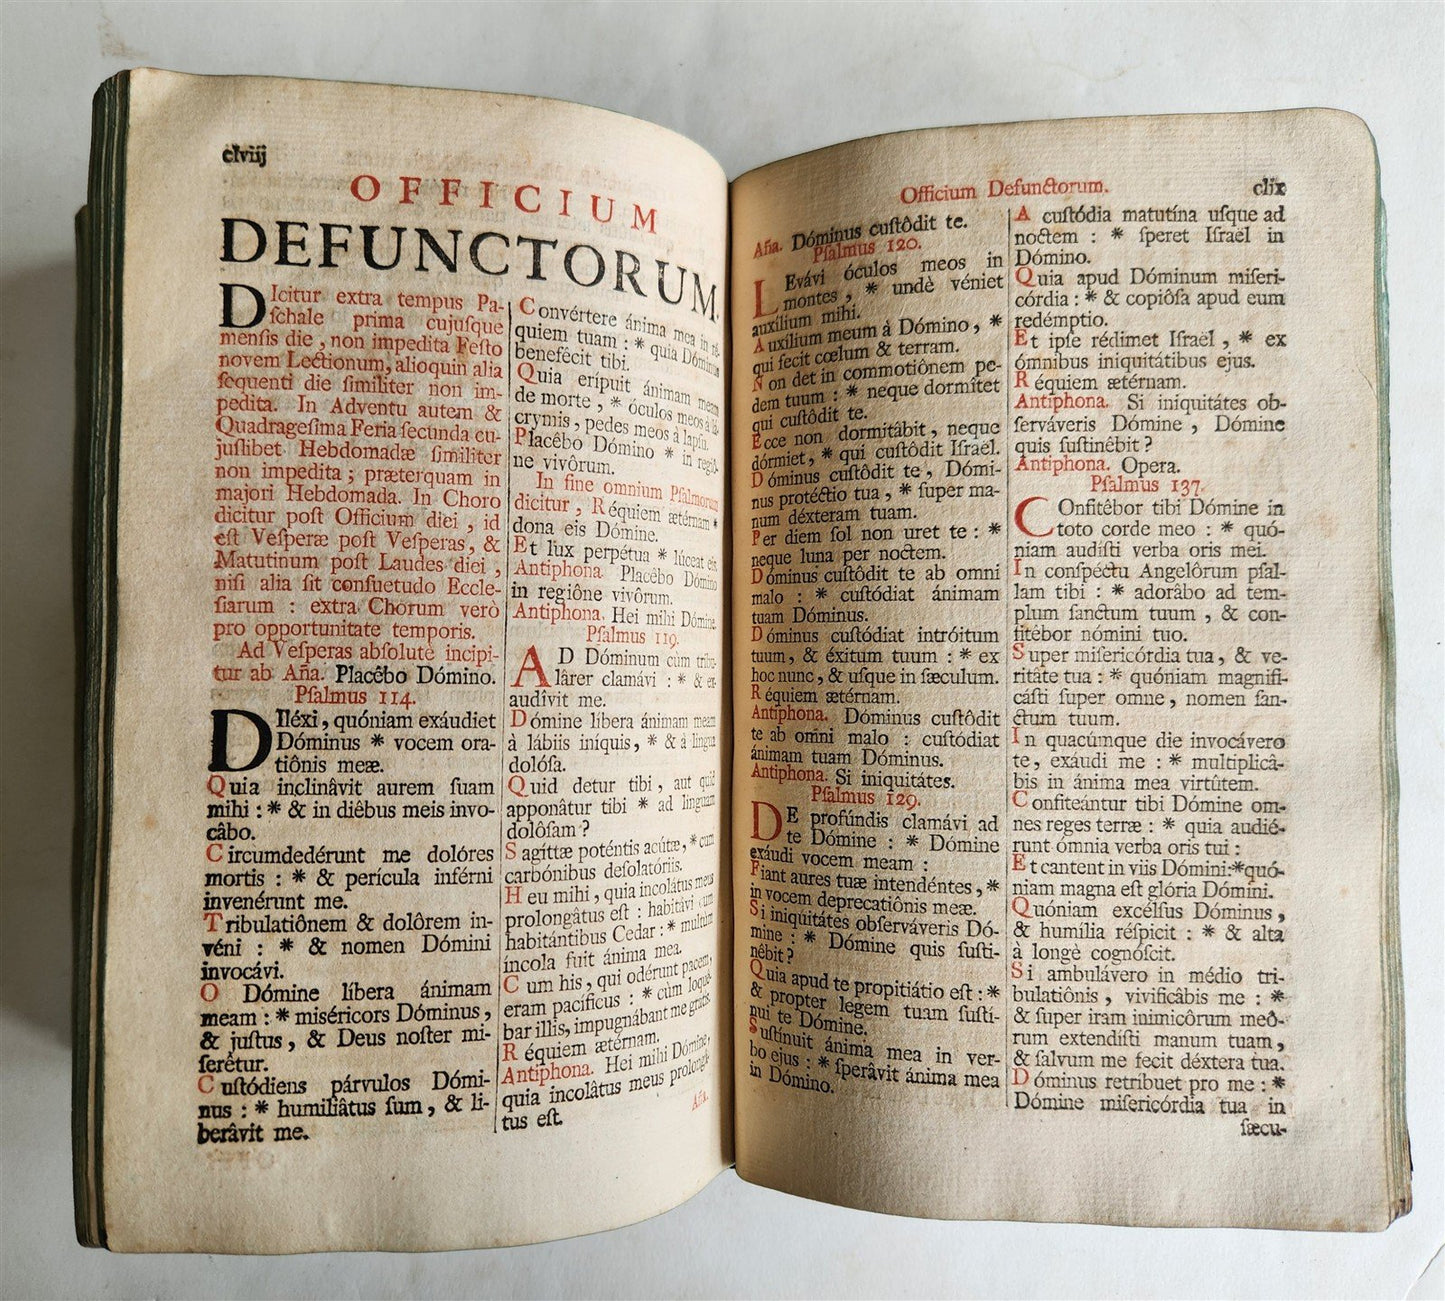 clviij
OFFICIUM
DEFUNCTORUM.
DIcitur extra tempus Pa-
ſchale prima cujuſque
menſis die , non impedita Feſto
novem Lectionum, alioquin alia
ſequenti die ſimiliter non im-
pedita. In Adventu autem &
Quadrageſima Feria ſecunda cu-
juſlibet Hebdomadæ ſimiliter
non impedita ; præterquam in
majori Hebdomada. In Choro
dicitur poſt Officium diei , id
eſt Veſperæ poſt Veſperas, &
Matutinum poſt Laudes diei ,
niſi alia ſit conſuetudo Eccle-
ſiarum : extra Chorum verò
pro opportunitate temporis.
Ad Veſperas abſolutè incipi-
tur ab Aña. Placêbo Dómino.
Pſalmus 114.
DIléxi, quóniam exáudiet
Dóminus * vocem ora-
tiônis meæ.
Quia inclinâvit aurem ſuam
mihi : * & in diêbus meis invo-
câbo.
Circumdedérunt me dolóres
mortis : * & perícula inférni
invenérunt me.
Tribulatiônem & dolôrem in-
véni : * & nomen Dómini
invocávi.
O Dómine líbera ánimam
meam : * miséricors Dóminus ,
& juſtus , & Deus noſter mi-
ſerêtur.
Cuſtódiens párvulos Dómi-
nus : * humiliâtus ſum , & li-
berâvit me.
Convértere ánima mea in ré-
quiem tuam : * quia Dóminus
benefécit tibi.
Quia erípuit ánimam meam
de morte , * óculos meos à lá-
crymis , pedes meos à lapſu.
Placêbo Dómino * in regiô-
ne vivôrum.
In fine omnium Pſalmorum
dicitur , Réquiem ætérnam *
dona eis Dómine.
Et lux perpétua * lúceat eis.
Antiphona. Placêbo Dómino
in regiône vivôrum.
Antiphona. Hei mihi Dómine.
Pſalmus 119.
AD Dóminum cùm tribu-
lârer clamávi : * & ex-
audîvit me.
Dómine líbera ánimam meam
à lábiis iníquis , * & à lingua
dolóſa.
Quid detur tibi , aut quid
apponâtur tibi * ad linguam
dolôſam ?
Sagíttæ poténtis acútæ, * cum
carbónibus deſolatóriis.
Heu mihi , quia incolátus meus
prolongâtus eſt : habitávi cum
habitántibus Cedar : * multùm
íncola fuit ánima mea.
Cum his , qui odérunt pacem,
eram pacíficus : * cùm loqué-
bar illis, impugnábant me gratis.
Réquiem ætérnam.
Antiphona. Hei mihi Dómine,
quia incolâtus meus prolongá-
tus eſt.
Aña.
Officium Defunctorum.
clix
Aña. Dóminus cuſtôdit te.
Pſalmus 120.
LEvávi óculos meos in
montes , * undè véniet
auxílium mihi.
Auxílium meum à Dómino , *
qui fecit cœlum & terram.
Non det in commotiônem pe-
dem tuum : * neque dormítet
qui cuſtôdit te.
Ecce non dormitâbit , neque
dórmiet , * qui cuſtôdit Iſraël.
Dóminus cuſtôdit te , Dómi-
nus protéctio tua , * ſuper ma-
num déxteram tuam.
Per diem ſol non uret te : *
neque luna per noctem.
Dóminus cuſtôdit te ab omni
malo : * cuſtódiat ánimam
tuam Dóminus.
Dóminus cuſtódiat intróitum
tuum , & éxitum tuum : * ex
hoc nunc , & uſque in ſæculum.
Réquiem ætérnam.
Antiphona. Dóminus cuſtôdit
te ab omni malo : cuſtódiat
ánimam tuam Dóminus.
Antiphona. Si iniquitátes.
Pſalmus 129.
DE profúndis clamávi ad
te Dómine : * Dómine
exáudi vocem meam :
Fiant aures tuæ intendéntes , *
in vocem deprecatiônis meæ.
Si iniquitátes obſerváveris Dó-
mine : * Dómine quis ſuſti-
nêbit ?
Quia apud te propitiátio eſt : *
& propter legem tuam ſuſti-
nui te Dómine.
Suſtínuit ánima mea in ver-
bo ejus : * ſperâvit ánima mea
in Dómino.
A cuſtódia matutína uſque ad
noctem : * ſperet Iſraël in
Dómino.
Quia apud Dóminum miſeri-
córdia : * & copióſa apud eum
redémptio.
Et ipſe rédimet Iſraël , * ex
ómnibus iniquitátibus ejus.
Réquiem ætérnam.
Antiphona. Si iniquitátes ob-
ſerváveris Dómine , Dómine
quis ſuſtinêbit ?
Antiphona. Opera.
Pſalmus 137.
COnfitêbor tibi Dómine in
toto corde meo : * quó-
niam audíſti verba oris mei.
In conſpéctu Angelôrum pſal-
lam tibi : * adorâbo ad tem-
plum ſanctum tuum , & con-
fitêbor nómini tuo.
Super miſericórdia tua , & ve-
ritâte tua : * quóniam magnifi-
cáſti ſuper omne , nomen ſan-
ctum tuum.
In quacúmque die invocávero
te , exáudi me : * multiplicâ-
bis in ánima mea virtûtem.
Confiteántur tibi Dómine om-
nes reges terræ : * quia audié-
runt ómnia verba oris tui :
Et cantent in viis Dómini:*quó-
niam magna eſt glória Dómini.
Quóniam excélſus Dóminus ,
& humília réſpicit : * & alta
à longè cognóſcit.
Si ambulávero in médio tri-
bulatiônis , vivificâbis me : *
& ſuper iram inimicôrum meô-
rum extendíſti manum tuam ,
& ſalvum me fecit déxtera tua.
Dóminus retríbuet pro me : *
Dómine miſericórdia tua in
ſæcu-